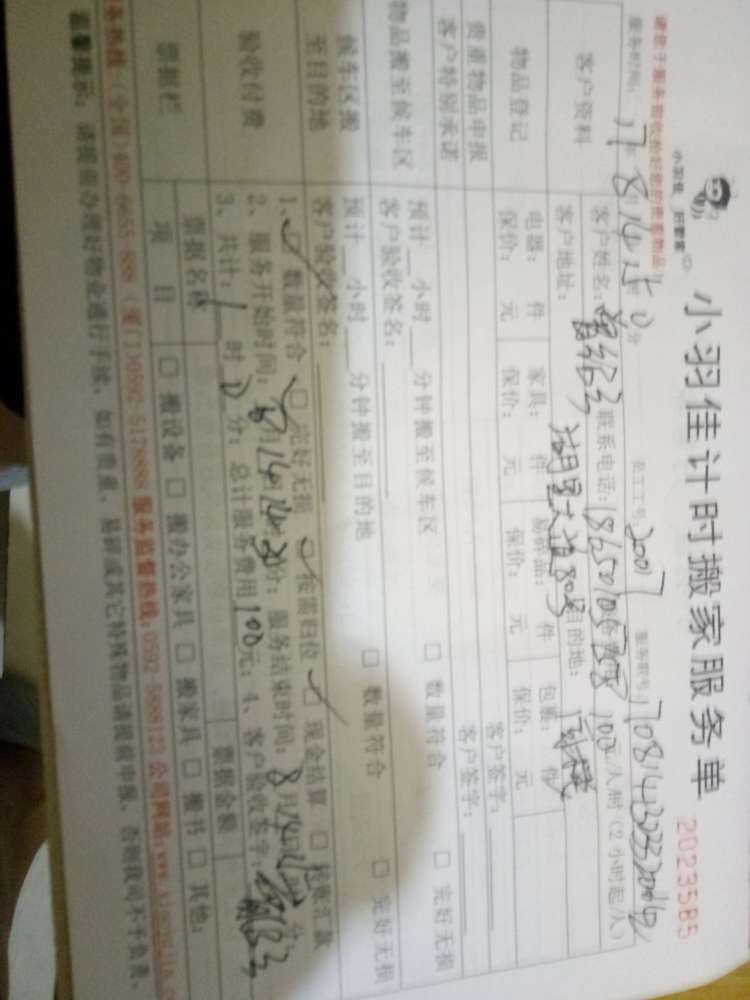 请您于服务前收捡好您的贵重物品！
小羽佳 好管家
小羽佳计时搬家服务单
2023585
服务时间：17 8 14 分
员工工号：2007
服务单号：
客户资料
客户姓名： 联系电话： 100元/人时（2小时起/人）
客户地址：湖里大道 目的地：
物品登记
电器： 件 家具： 件 易碎品： 件 包裹： 件
保价： 元 保价： 元 保价： 元 保价： 元
贵重物品申报
客户签字：
客户特别承诺
客户签字：
物品搬至候车区
预计 小时 分钟搬至候车区 □ 数量符合 □ 完好无损
客户验收签名：
候车区搬至目的地
预计 小时 分钟搬至目的地 □ 数量符合 □ 完好无损
客户验收签名：
验收付费
1、□ 数量符合 □ 完好无损 □ 按需归位 □ 现金结算 □ 转账汇款
2、服务开始时间：8月14日14时 分；服务结束时间：8月 分
3、共计：1时 分；总计服务费用100元；4、客户验收签字：
票据栏
票据名称 票据金额
项 目 □ 搬设备 □ 搬办公家具 □ 搬家具 □ 搬书 □ 其他：
服务热线：（全国）400-6655-888（厦门）0592-5178888 服务监督热线：0592-5888123 公司网址：www.xiaoyujia.c
温馨提示：请提前办理好物业通行手续，如有贵重、易碎或其它特殊物品请提前申报，否则我司不予负责。